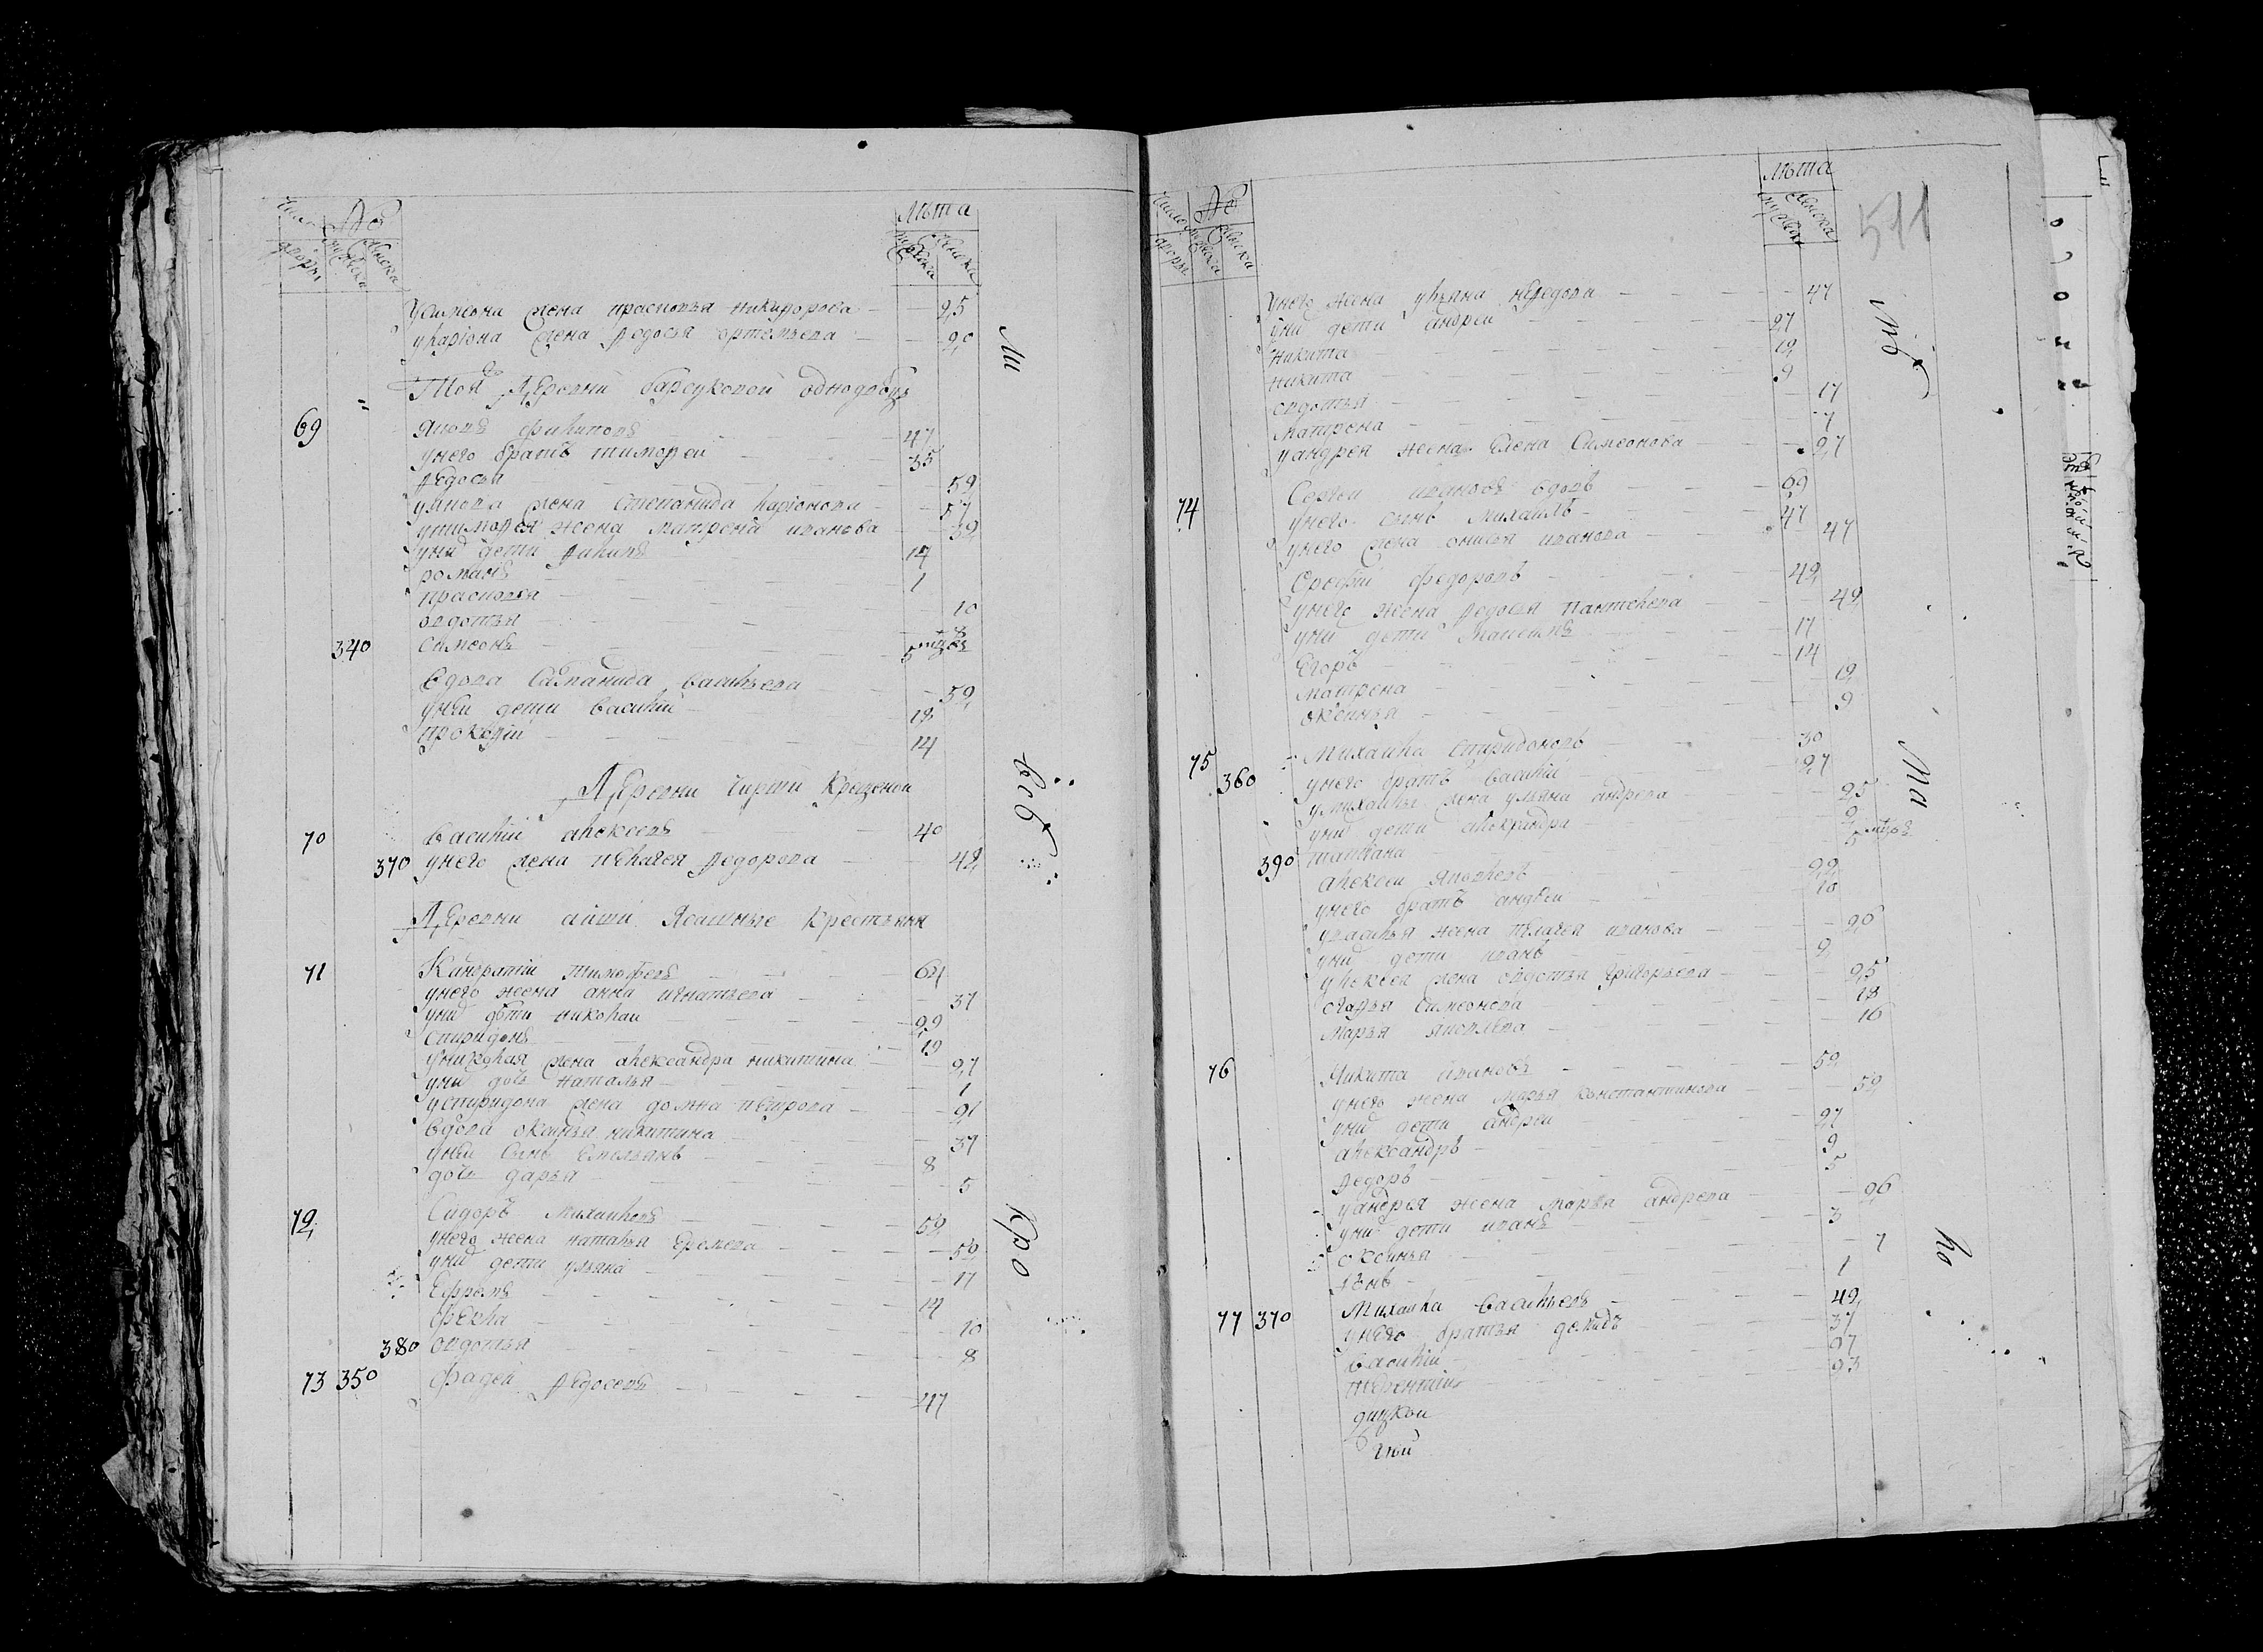 Число дворы
№
мужеска женска
Лѣта
мужеска женска
Усимеона жена прасковья никифорова 25
уларіона жена Ѳедосья ортемьева 20
Той Деревни барсуковой однодворцы
69 Яковъ филиповъ 47
унего братъ тимоѳеи 35
Ѳедосья 52
уякова жена Степанида ларіонова 57
утимоѳея жена матрена иванова 32
унихъ дети Филипъ 14
романъ 1
прасковья 10
овдотья 8
340 симеонъ 5 мцовъ
Вдова Степанида васильева 52
унеи дети василіи 18
прокофіи 14
Деревни Крещеной
70 Василіи алексеевъ 40
370 унего жена пелагея Ѳедорова 42
Деревни аиши Ясашные Крестьяня
71 Кандратіи тимофеевъ 64
унего жена анна игнатьева 37
унихъ дети николаи 22
спиридонъ 19
униколая жена александра никитина 27
унихъ дочь наталья 1
успиридона жена домна петрова 21
Вдова оксинья никитина 37
унеи сынъ емельянъ 8
дочь дарья 5
72 Сидоръ Михаиловъ 52
унего жена наталья Еремеева 52
унихъ дети ульяна 17
Ефремъ 14
Фекла 10
380 овдотья 8
73 350 Фадей Ѳедосеевъ 47
ли
Кро
511
Число дворы
№
мужеска женска
Лѣта
мужеска женска
унего жена ульяна неѳедова 47
унихъ дети андреи 27
никита 12
никита 9
овдотья 17
матрена 7
уандрея жена Елена Симеонова 27
74 Сергеи ивановъ вдовъ 69
унего сынъ михаилъ 47
унего жена онисья иванова 47
Ерофіи федоровъ 42
унего жена Ѳедосья пантелеева 42
унихъ дети 17
Егоръ 14
матрена 12
оксинья 9
75 Михаила спиридоновъ 30
360 унего братъ василіи 27
умихаилы жена ульяна андреева 25
унихъ дети александра 2
390 татіана 5 мцовъ
алексеи Яковлевъ 22
унего братъ андреи 10
жена пелагея иванова 20
унихъ дети иванъ 2
жена овдотья григорьева 25
Симеонова 18
марья яковлева 16
76 Никита ивановъ 52
унего жена марья константинова 52
унихъ дети андреи 27
александръ 9
Ѳедоръ 5
уандрея жена марья андреева 26
унихъ дети иванъ 3
оксинья 7
1
77 370 Михаила васильевъ 42
унего братья демидъ 37
василіи 27
терентіи 23
та
ло